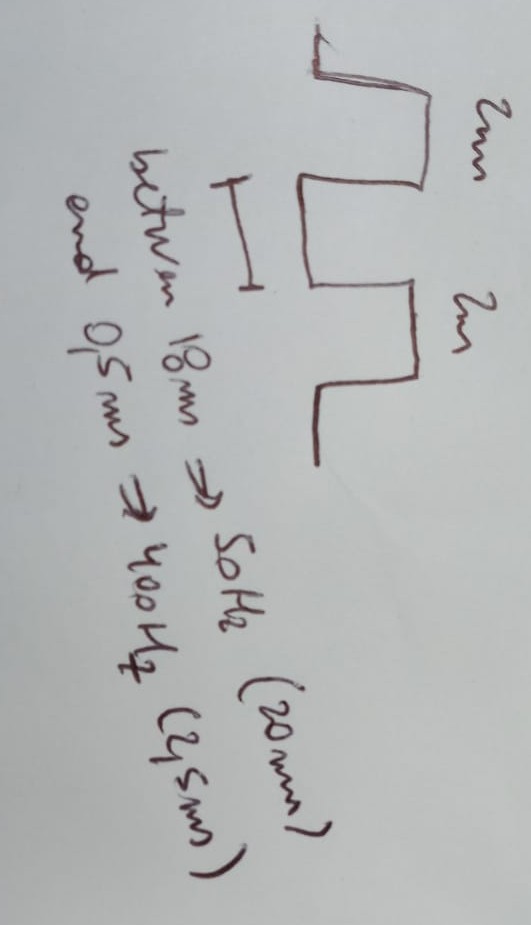 2ms 2ms
between 18ms ⇒ 50Hz (20ms)
and 0,5ms ⇒ 400Hz (2,5ms)